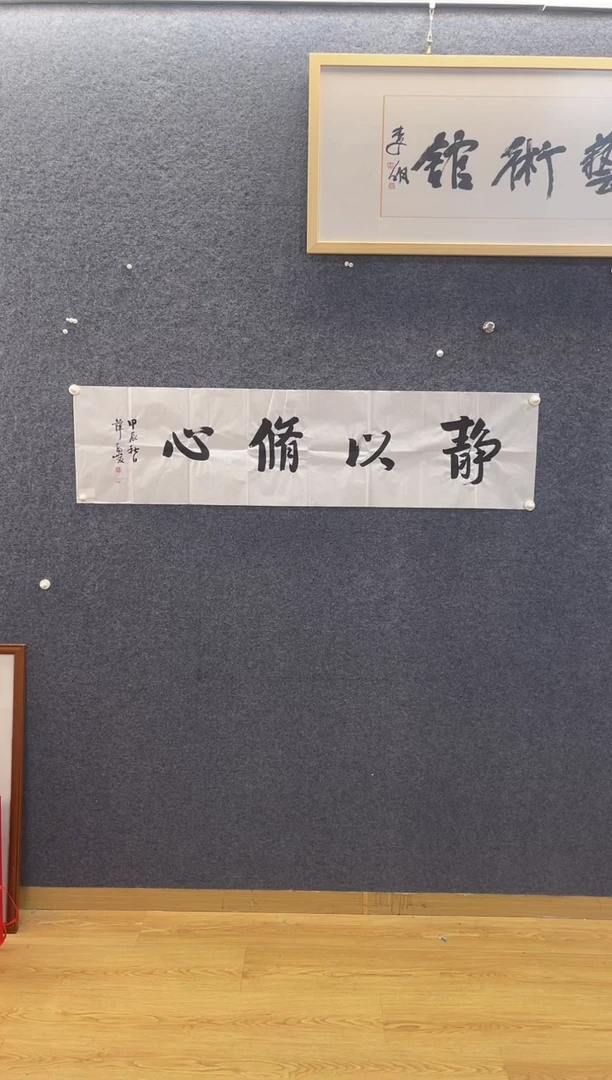 藝術館
静以脩心
甲辰秋